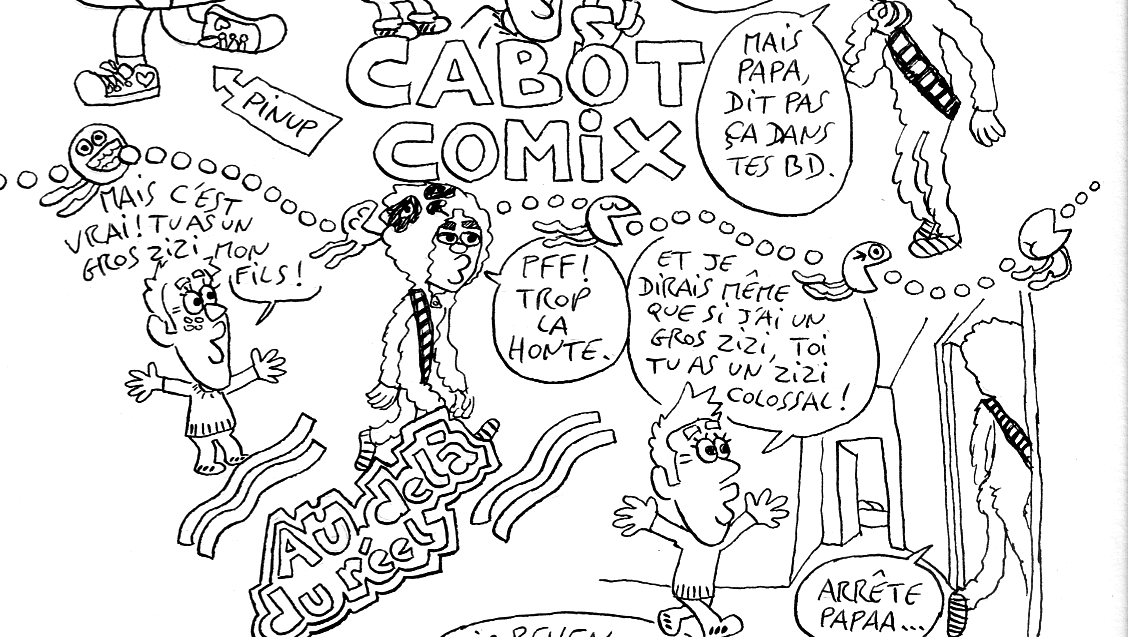 CABÔT
COMiX
PiNUP
MAiS
PAPA,
DiT PAS
ÇA DANS
TES BD.
MAiS C'EST
VRAi! TU AS UN
GROS ZiZi MON
FiLS!
PFF!
TROP
LA
HONTE.
ET JE
DiRAiS MÊME
QUE Si J'Ai UN
GROS ZiZi, TOi
TU AS UN ZiZi
COLOSSAL!
AU delà
du réel
ARRÊTE
PAPAA...